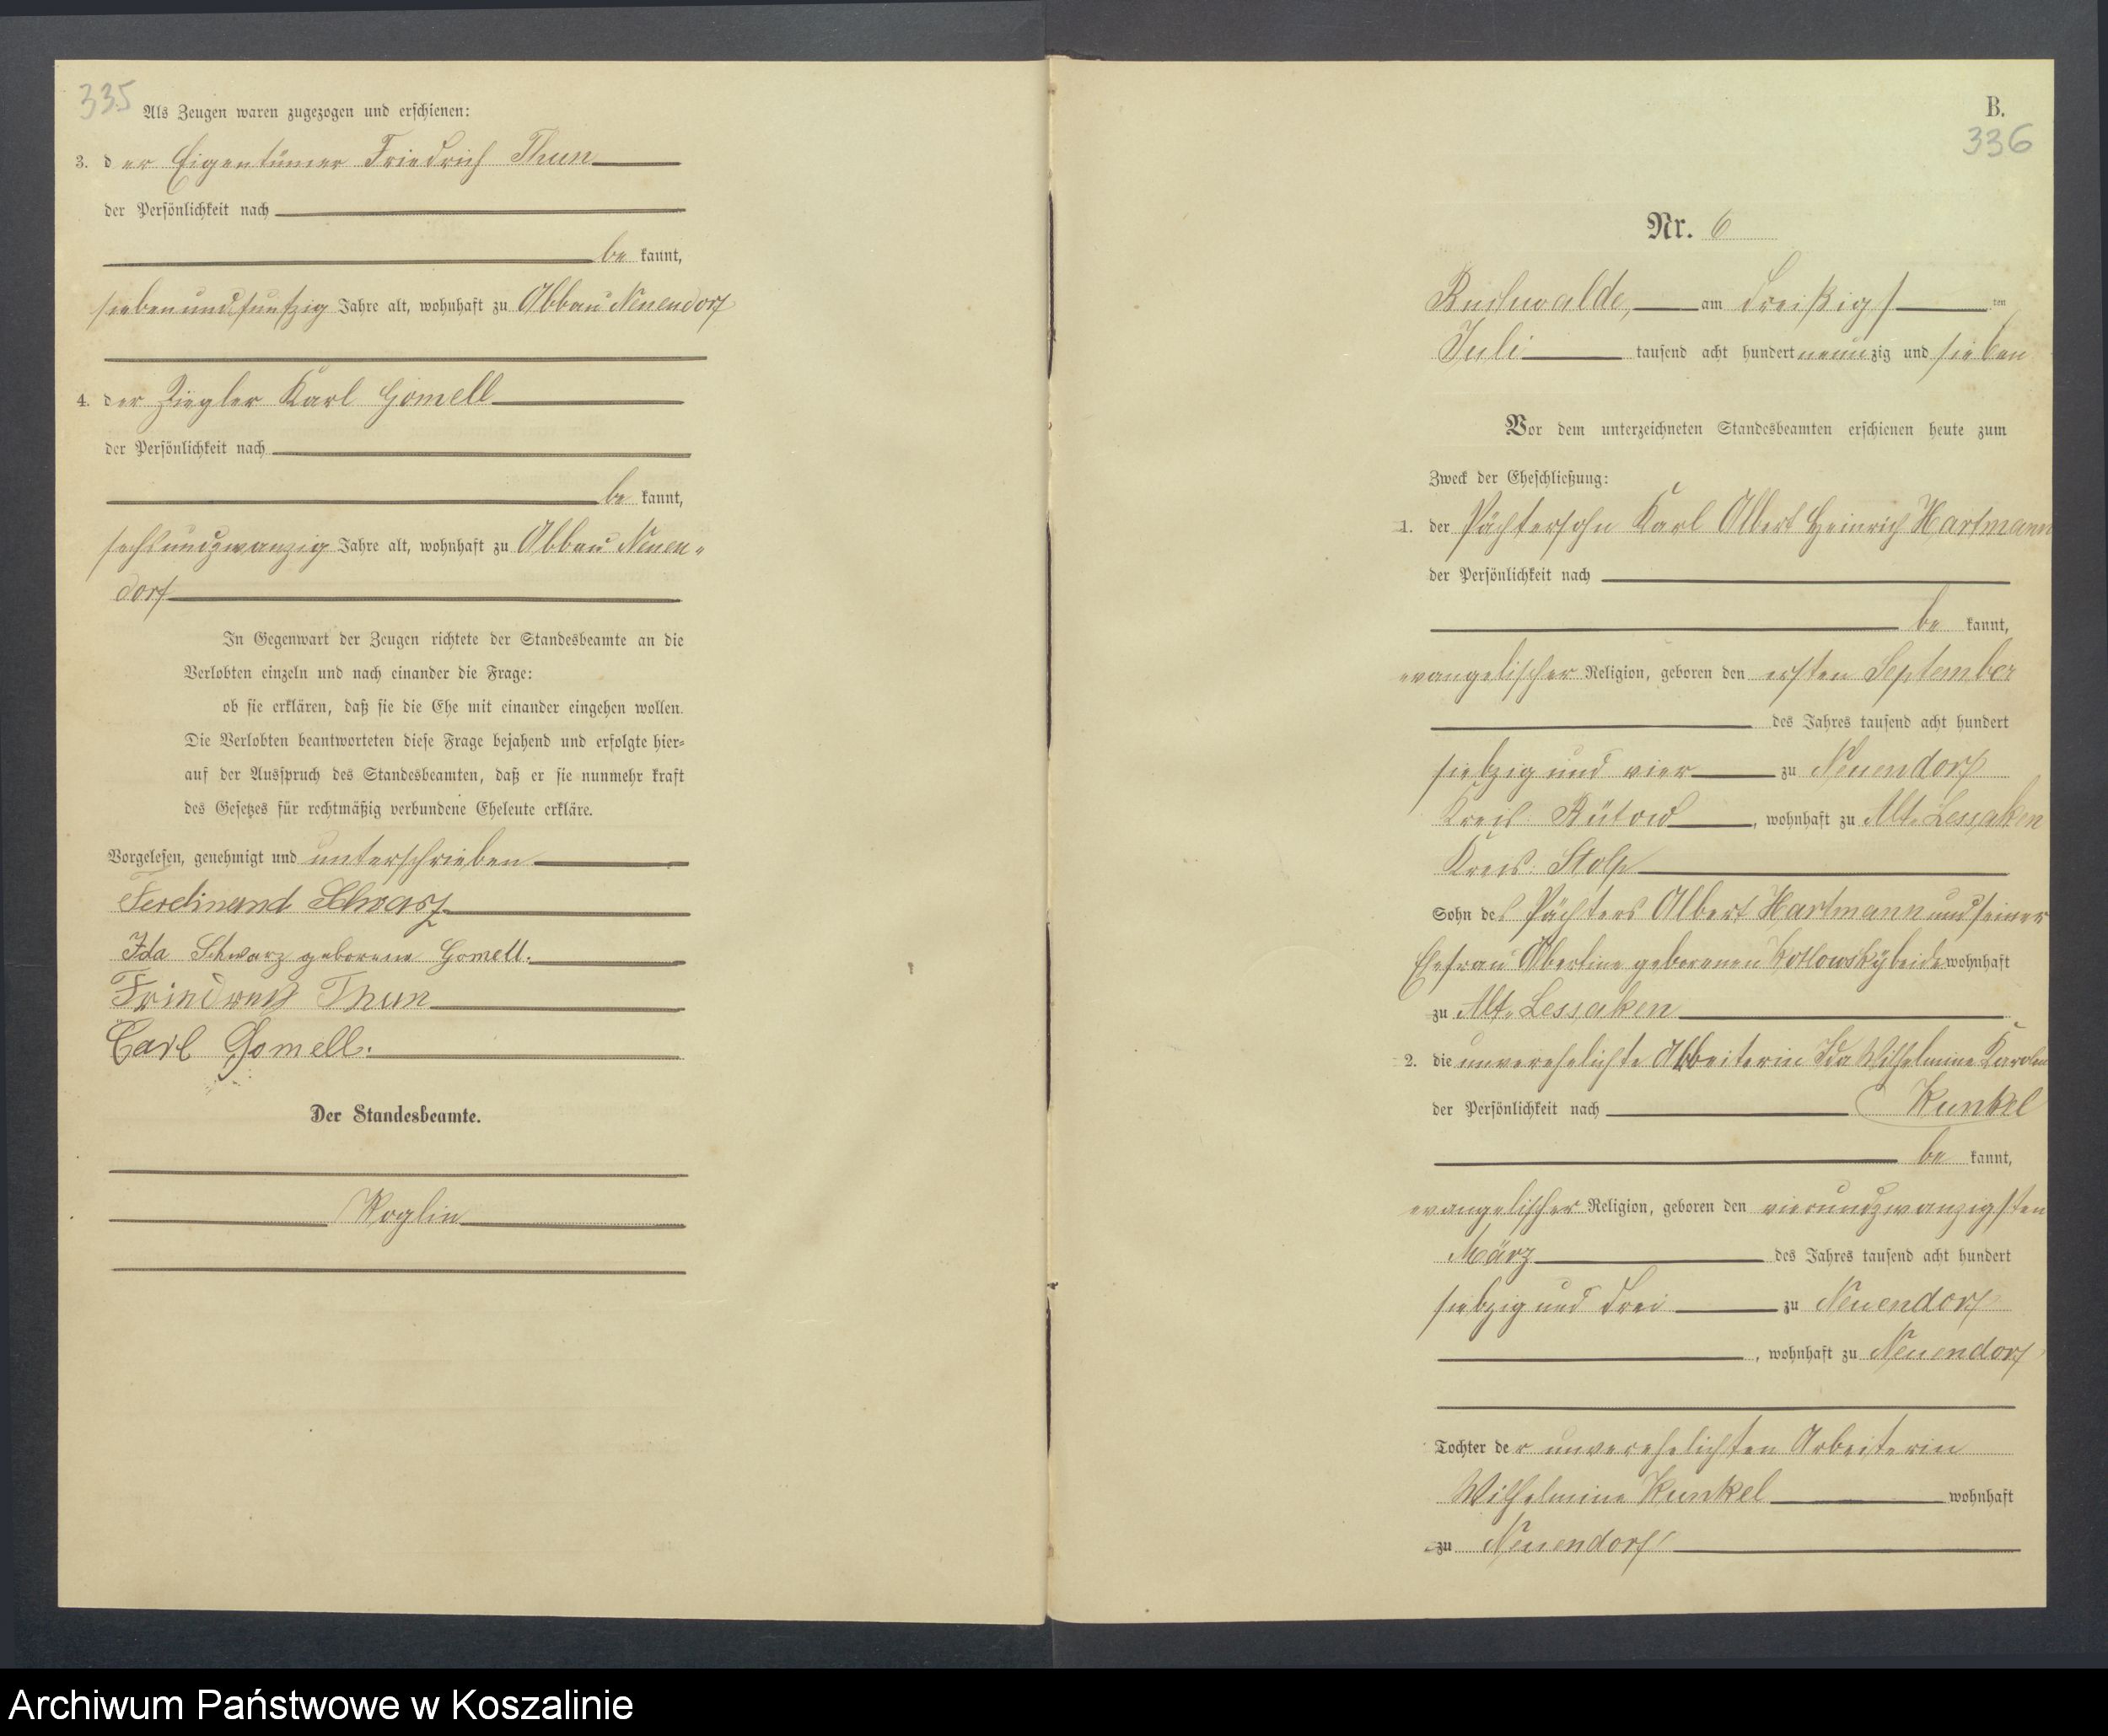 335
Als Zeugen waren zugezogen und erschienen:
3. der Eigentümer Friedrich Thun
der Persönlichkeit nach
be kannt,
siebenundfünfzig Jahre alt, wohnhaft zu Abbau Neuendorf
4. der Ziegler Karl Gomell
der Persönlichkeit nach
be kannt,
sechsundzwanzig Jahre alt, wohnhaft zu Abbau Neuen-
dorf
In Gegenwart der Zeugen richtete der Standesbeamte an die
Verlobten einzeln und nach einander die Frage:
ob sie erklären, daß sie die Ehe mit einander eingehen wollen.
Die Verlobten beantworteten diese Frage bejahend und erfolgte hier-
auf der Ausspruch des Standesbeamten, daß er sie nunmehr kraft
des Gesetzes für rechtmäßig verbundene Eheleute erkläre.
Vorgelesen, genehmigt und unterschrieben
Ferdinand Schwarz
Ida Schwarz geborene Gomell.
Friedrich Thun
Carl Gomell.
Der Standesbeamte.
Roglin
B.
336
Nr. 6
am dreißigsten
Juli tausend acht hundert neunzig und sieben
Vor dem unterzeichneten Standesbeamten erschienen heute zum
Zweck der Eheschließung:
1. der Pächtersohn Karl Albert Heinrich Hartmann
der Persönlichkeit nach
be kannt,
evangelischer Religion, geboren den ersten September
des Jahres tausend acht hundert
siebzig und vier zu Neuendorf
Kreis Bütow, wohnhaft zu Alt-Lessaken
Kreis Stolp
Sohn des Pächters Albert Hartmann und seiner
Ehefrau Albertine geborenen Kotlowsky beide wohnhaft
zu Alt-Lessaken
2. die unverehelichte Arbeiterin Ida Wilhelmine Karoline
der Persönlichkeit nach Kunkel
be kannt,
evangelischer Religion, geboren den vierundzwanzigsten
März des Jahres tausend acht hundert
siebzig und drei zu Neuendorf
, wohnhaft zu Neuendorf
Tochter der unverehelichten Arbeiterin
Wilhelmine Kunkel wohnhaft
zu Neuendorf
Archiwum Państwowe w Koszalinie